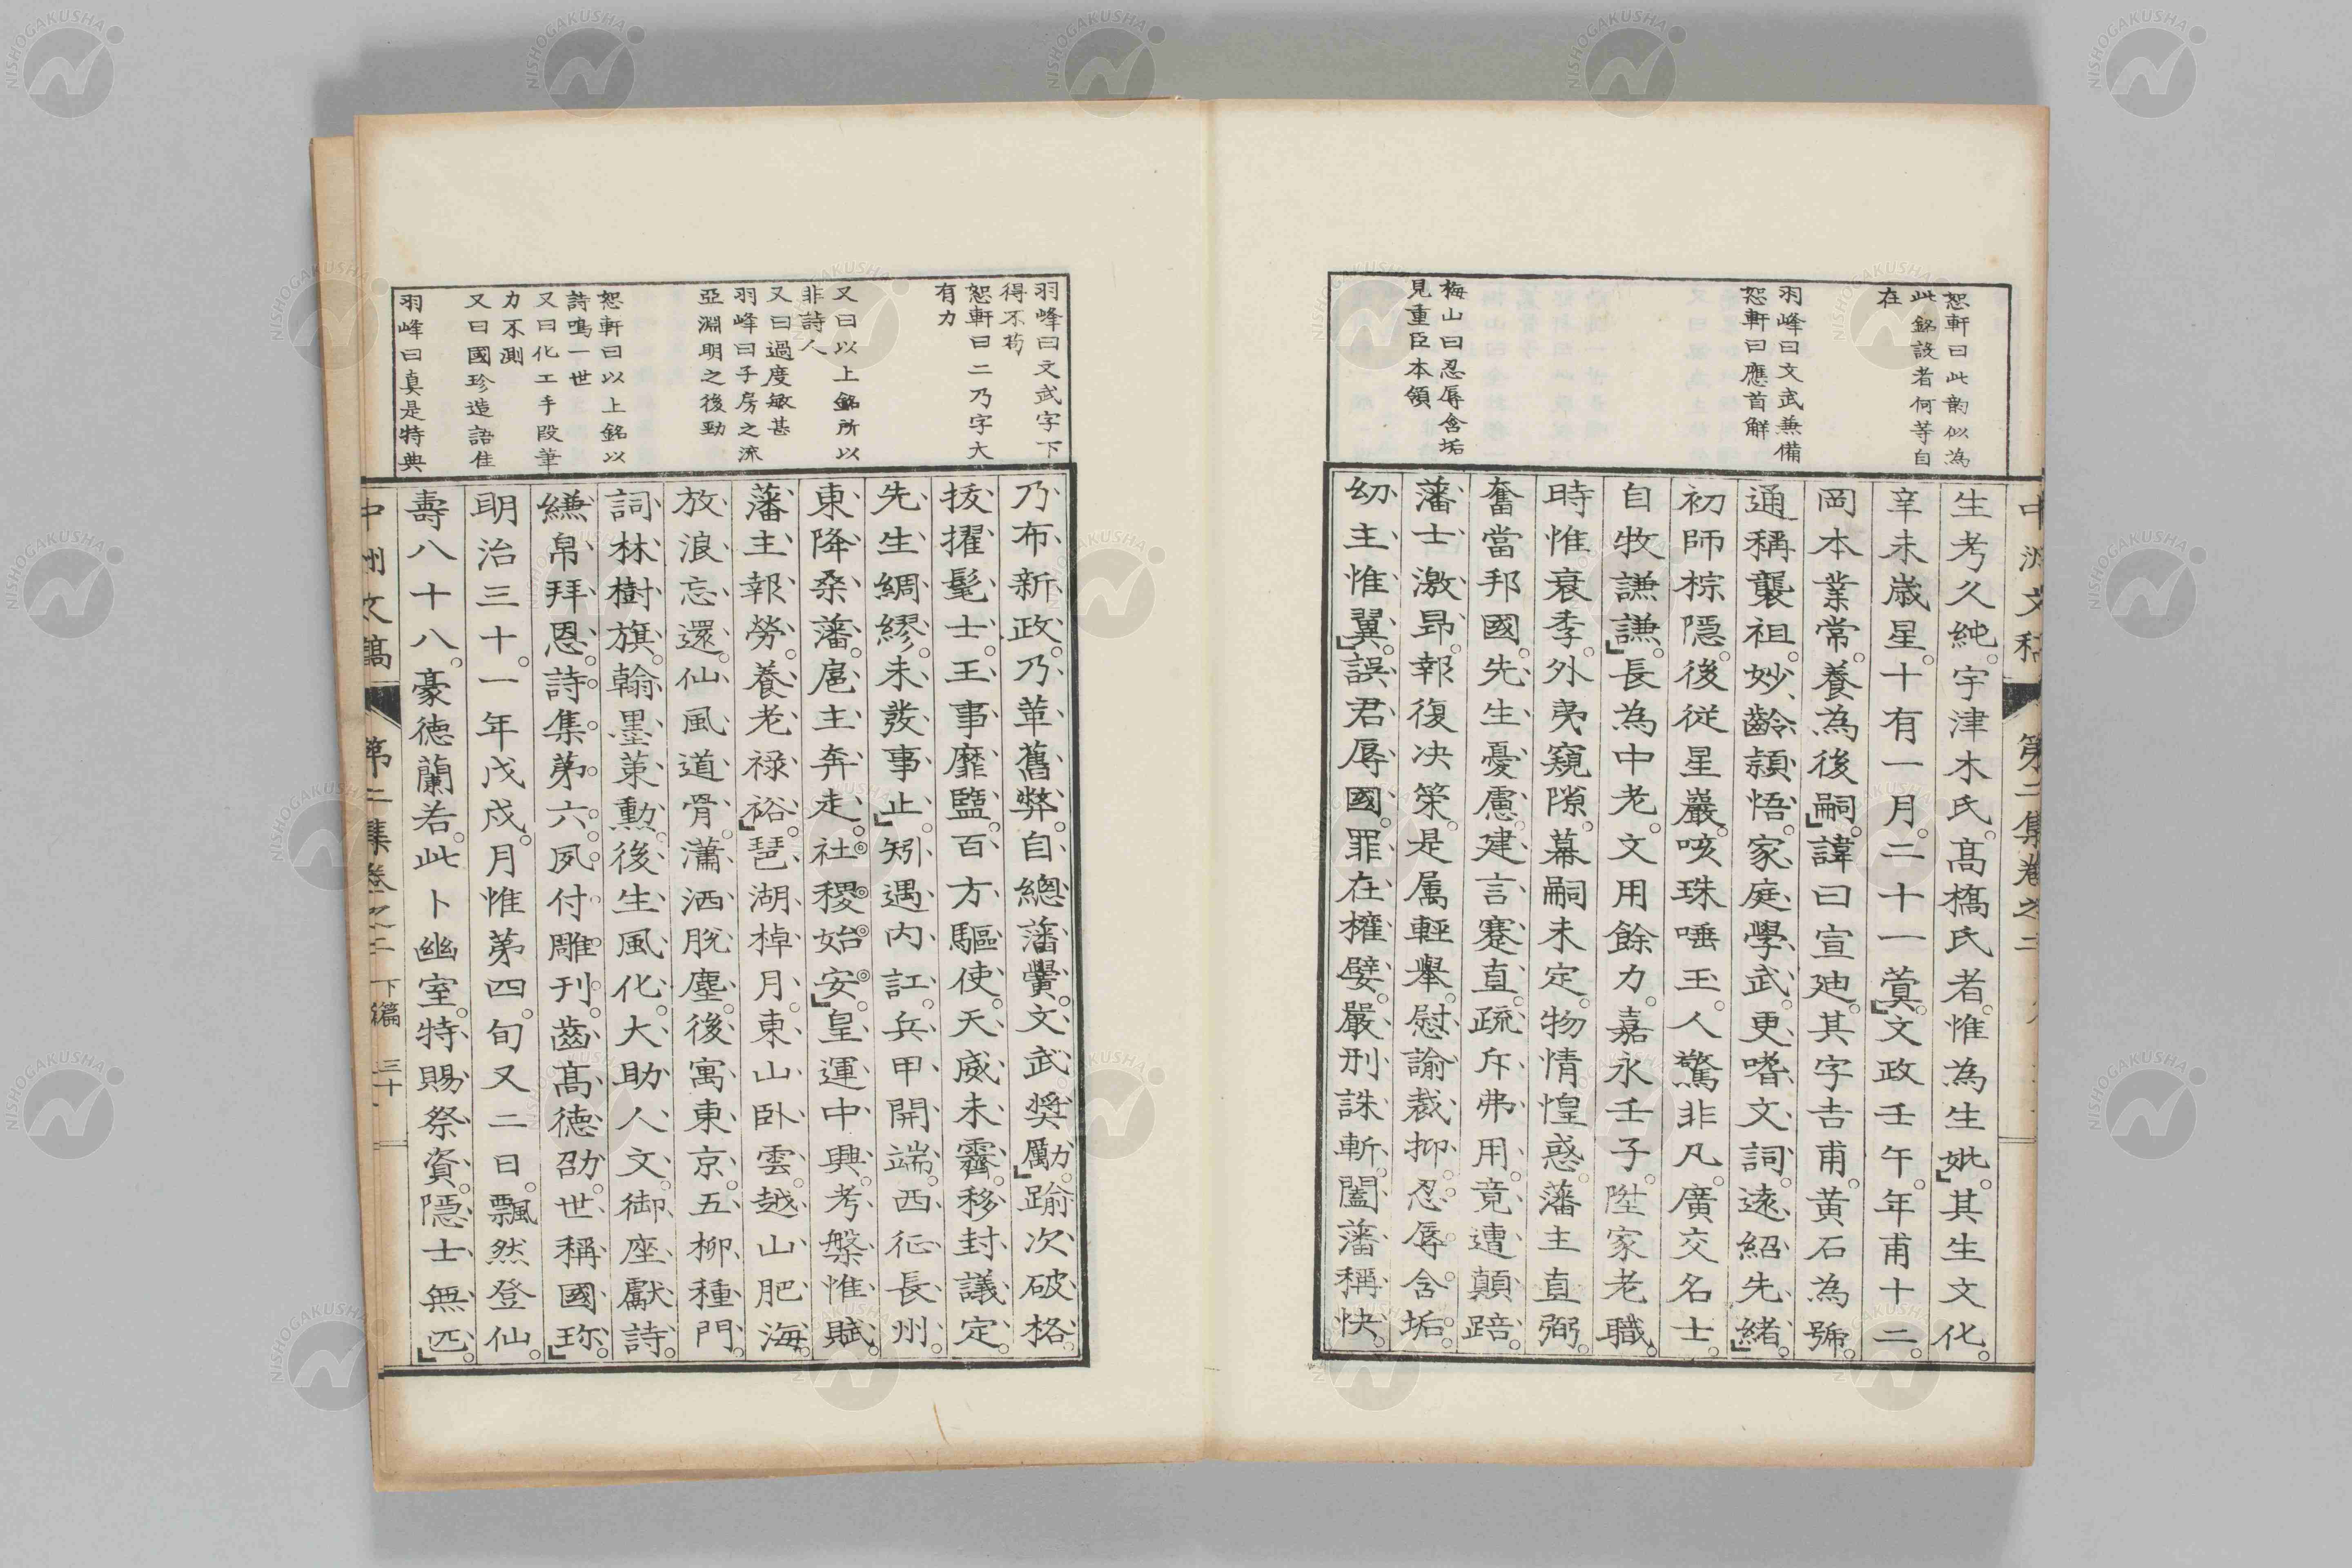 恕軒曰此韵似為
此銘設者何等自
在
羽峰曰文武兼備
恕軒曰應首解
梅山曰忍辱含垢
見重臣本領
生考久純。宇津木氏。髙橋氏者。惟為生妣。其生文化。
辛未歳星。十有一月。二十一蓂。文政壬午。年甫十二。
岡本業常。養為後嗣。諱曰宣迪。其字吉甫。黄石為號。
通稱襲祖。妙齡頴悟。家庭學武。更嗜文詞。遠紹先緒。
初師棕隠。後従星巖。咳珠唾玉。人驚非凡。廣交名士。
自牧謙謙。長為中老。文用餘力。嘉永壬子。陞家老職。
時惟衰季。外夷窺隙。幕嗣未定。物情惶惑。藩主直弼。
奮當邦國。先生憂慮。建言蹇直。疏斥弗用。竟遭顛踣。
藩士激昻。報復决策。是属輕舉。慰諭裁抑。忍辱含垢。
幼主惟翼。誤君辱國。罪在權嬖。嚴刑誅斬。闔藩稱快。
羽峰曰文武字下
得不苟
恕軒曰二乃字大
有力
又曰以上銘所以
非詩人
又曰過度敏甚
羽峰曰子房之流
亞淵明之後勁
恕軒曰以上銘以
詩鳴一世
又曰化工手段筆
力不測
又曰國珍造語佳
羽峰曰真是特典
乃布新政。乃革舊弊。自總藩黌。文武奨勵。踰次破格。
抜擢髦士。王事靡盬。百方驅使。天威未霽。移封議定。
先生綢繆。未發事止。矧遇内訌。兵甲開端。西征長州。
東降桑藩。扈主奔走。社稷始安。皇運中興。考槃惟賦。
藩主報勞。養老禄裕。琶湖棹月。東山卧雲。越山肥海。
放浪忘還。仙風道骨。瀟洒脱塵。後寓東京。五柳種門。
詞林樹旗。翰墨策勲。後生風化。大助人文。御座獻詩。
縑帛拜恩。詩集第六。夙付雕刊。齒髙德劭。世稱國珎。
明治三十。一年戊戌。月惟第四。旬又二日。飄然登仙。
壽八十八。豪徳蘭若。此卜幽室。特賜祭資。隠士無匹。
中洲文稿 第二集卷之二 下篇 三十